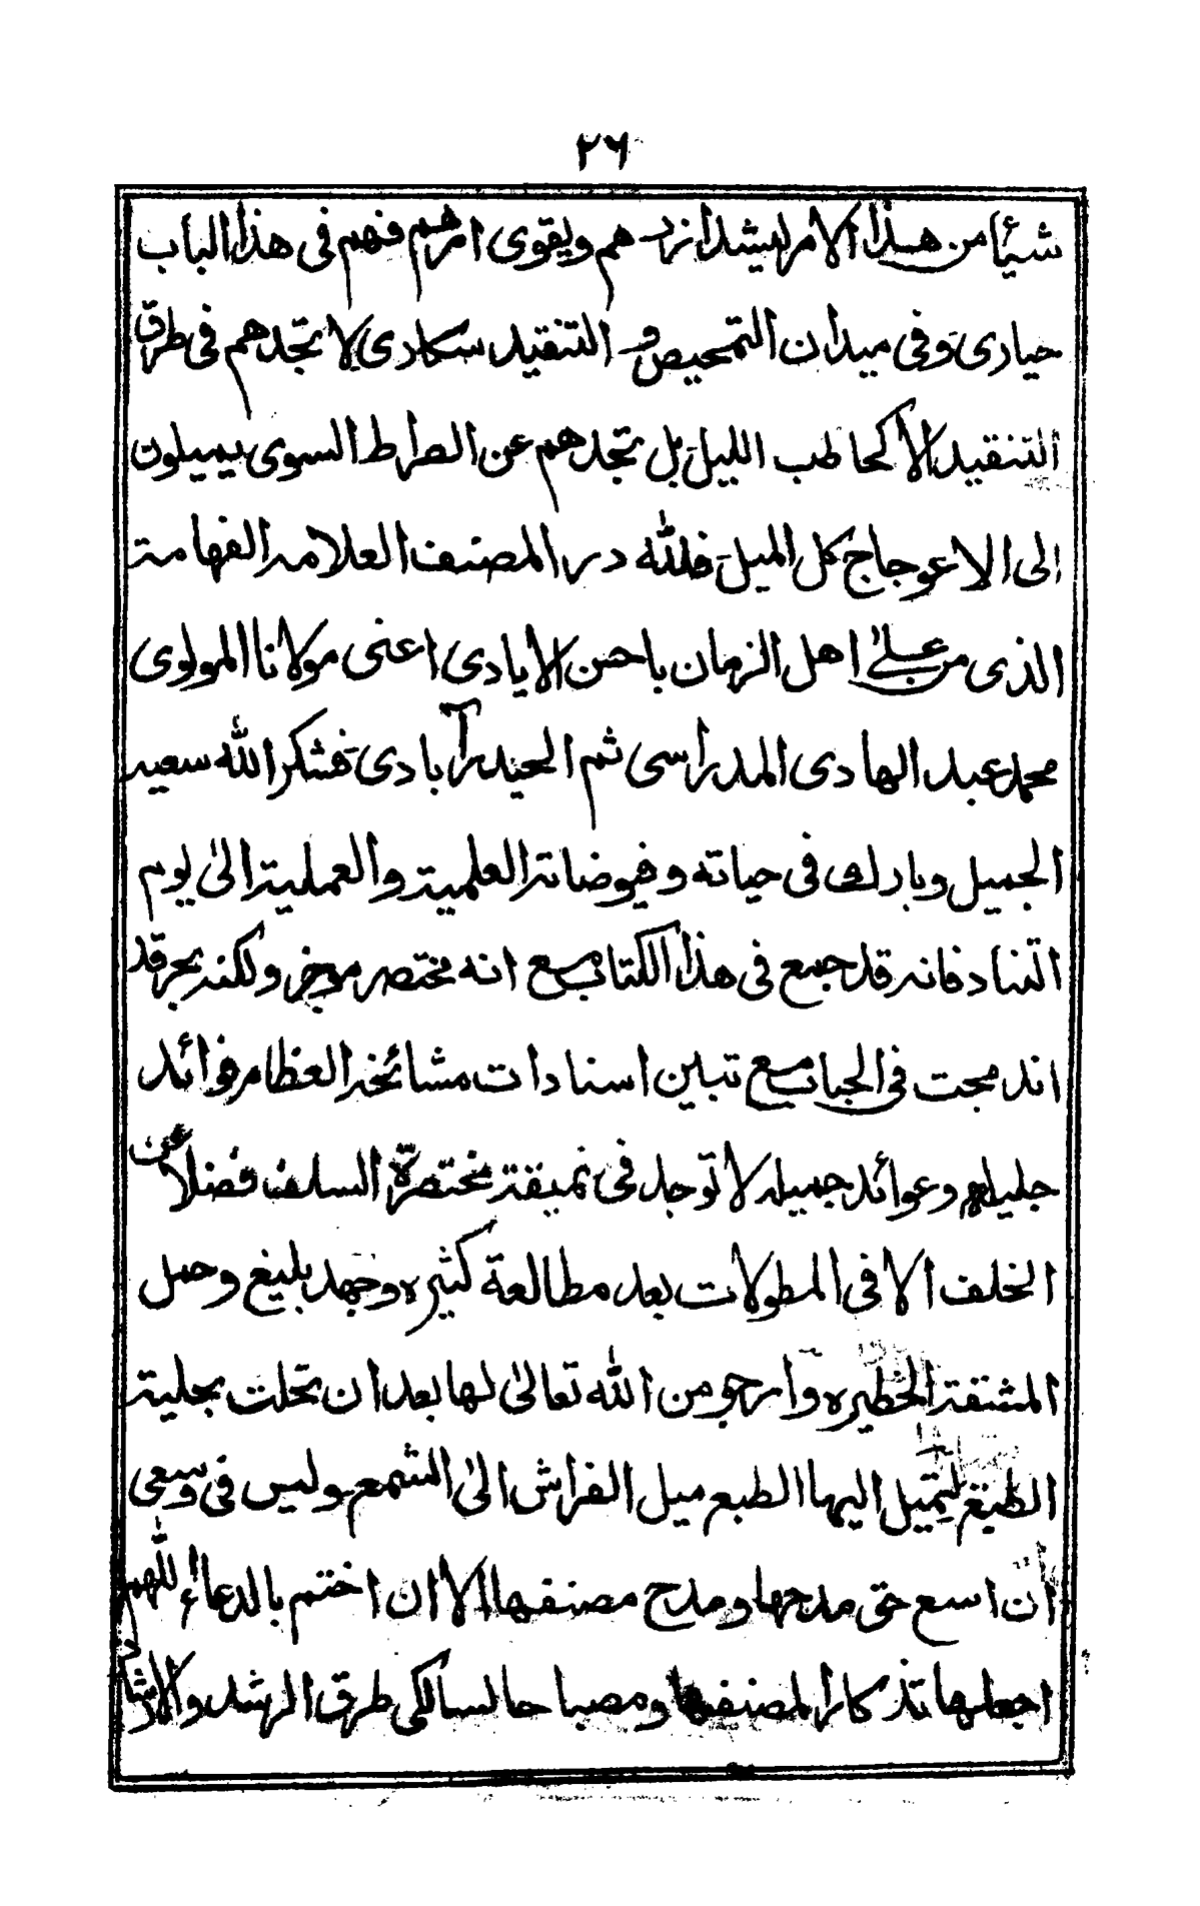 ٢٦
شيئا من هذا الامر ليشد ازرهم ويقوى امرهم فهم فى هذا الباب
حيارى وفى ميدان التمحيص و التنقيد سكارى لا تجدهم فى طرق
التنقيد الا كحاطب الليل بل تجدهم عن الصراط السوى يميلون
الى الاعوجاج كل الميل فلله در المصنف العلامه الفهامة
الذى من على اهل الزمان باحسن الايادى اعنى مولانا المولوى
محمد عبد الهادى المدراسى ثم الحيدرآبادى فشكر الله سعيه
الجميل وبارك فى حياته وفيوضاته العلمية والعملية الى يوم
التناد فانه قد جمع فى هذا الكتاب مع انه مختصر موجز ولكنه بحر قد
اندمجت فى الجباب مع تبيين اسنادات مشائخه العظام فوائد
جليله وعوائد جميله لا توجد فى نميقة مختصرة السلف فضلا عن
الخلف الا فى المطولات بعد مطالعة كثيره وجهد بليغ وحمل
المشقة الخطيره وارجو من الله تعالى لها بعد ان تحلت بحلية
الطبع ليميل اليها الطبع ميل الفراش الى الشمع وليس فى وسعى
ان اسع حق مدحها ومدح مصنفها الا ان اختم بالدعاء اللهم
اجعلها تذكارا لمصنفها ومصباحا لسالكى طرق الرشد والارشاد